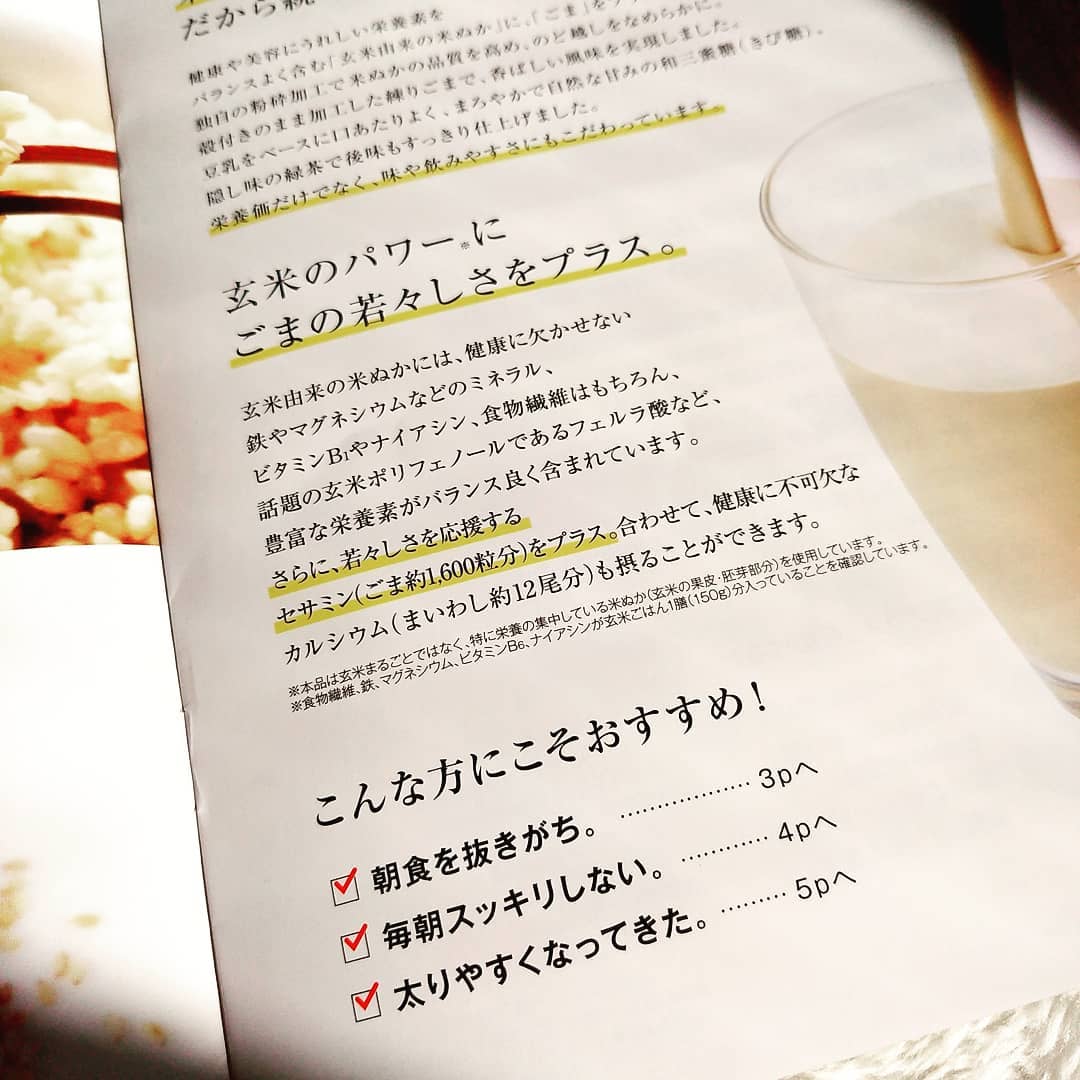 だから続
健康や美容にうれしい栄養素を
バランスよく含む「玄米由来の米ぬか」に、「ごま」をプラ
独自の粉砕加工で米ぬかの品質を高め、のど越しをなめらかに。
殻付きのまま加工した練りごまで、香ばしい風味を実現しました。
豆乳をベースに口あたりよく、まろやかで自然な甘みの和三蜜糖(きび糖)。
隠し味の緑茶で後味もすっきり仕上げました。
栄養価だけでなく、味や飲みやすさにもこだわっています。
玄米のパワー※に
ごまの若々しさをプラス。
玄米由来の米ぬかには、健康に欠かせない
鉄やマグネシウムなどのミネラル、
ビタミンB1やナイアシン、食物繊維はもちろん、
話題の玄米ポリフェノールであるフェルラ酸など、
豊富な栄養素がバランス良く含まれています。
さらに、若々しさを応援する
セサミン(ごま約1,600粒分)をプラス。合わせて、健康に不可欠な
カルシウム(まいわし約12尾分)も摂ることができます。
※本品は玄米まるごとではなく、特に栄養の集中している米ぬか(玄米の果皮・胚芽部分)を使用しています。
※食物繊維、鉄、マグネシウム、ビタミンB6、ナイアシンが玄米ごはん1膳(150g)分入っていることを確認しています。
こんな方にこそおすすめ!
朝食を抜きがち。 ………………… 3pへ
毎朝スッキリしない。 ………… 4pへ
太りやすくなってきた。 ……… 5pへ